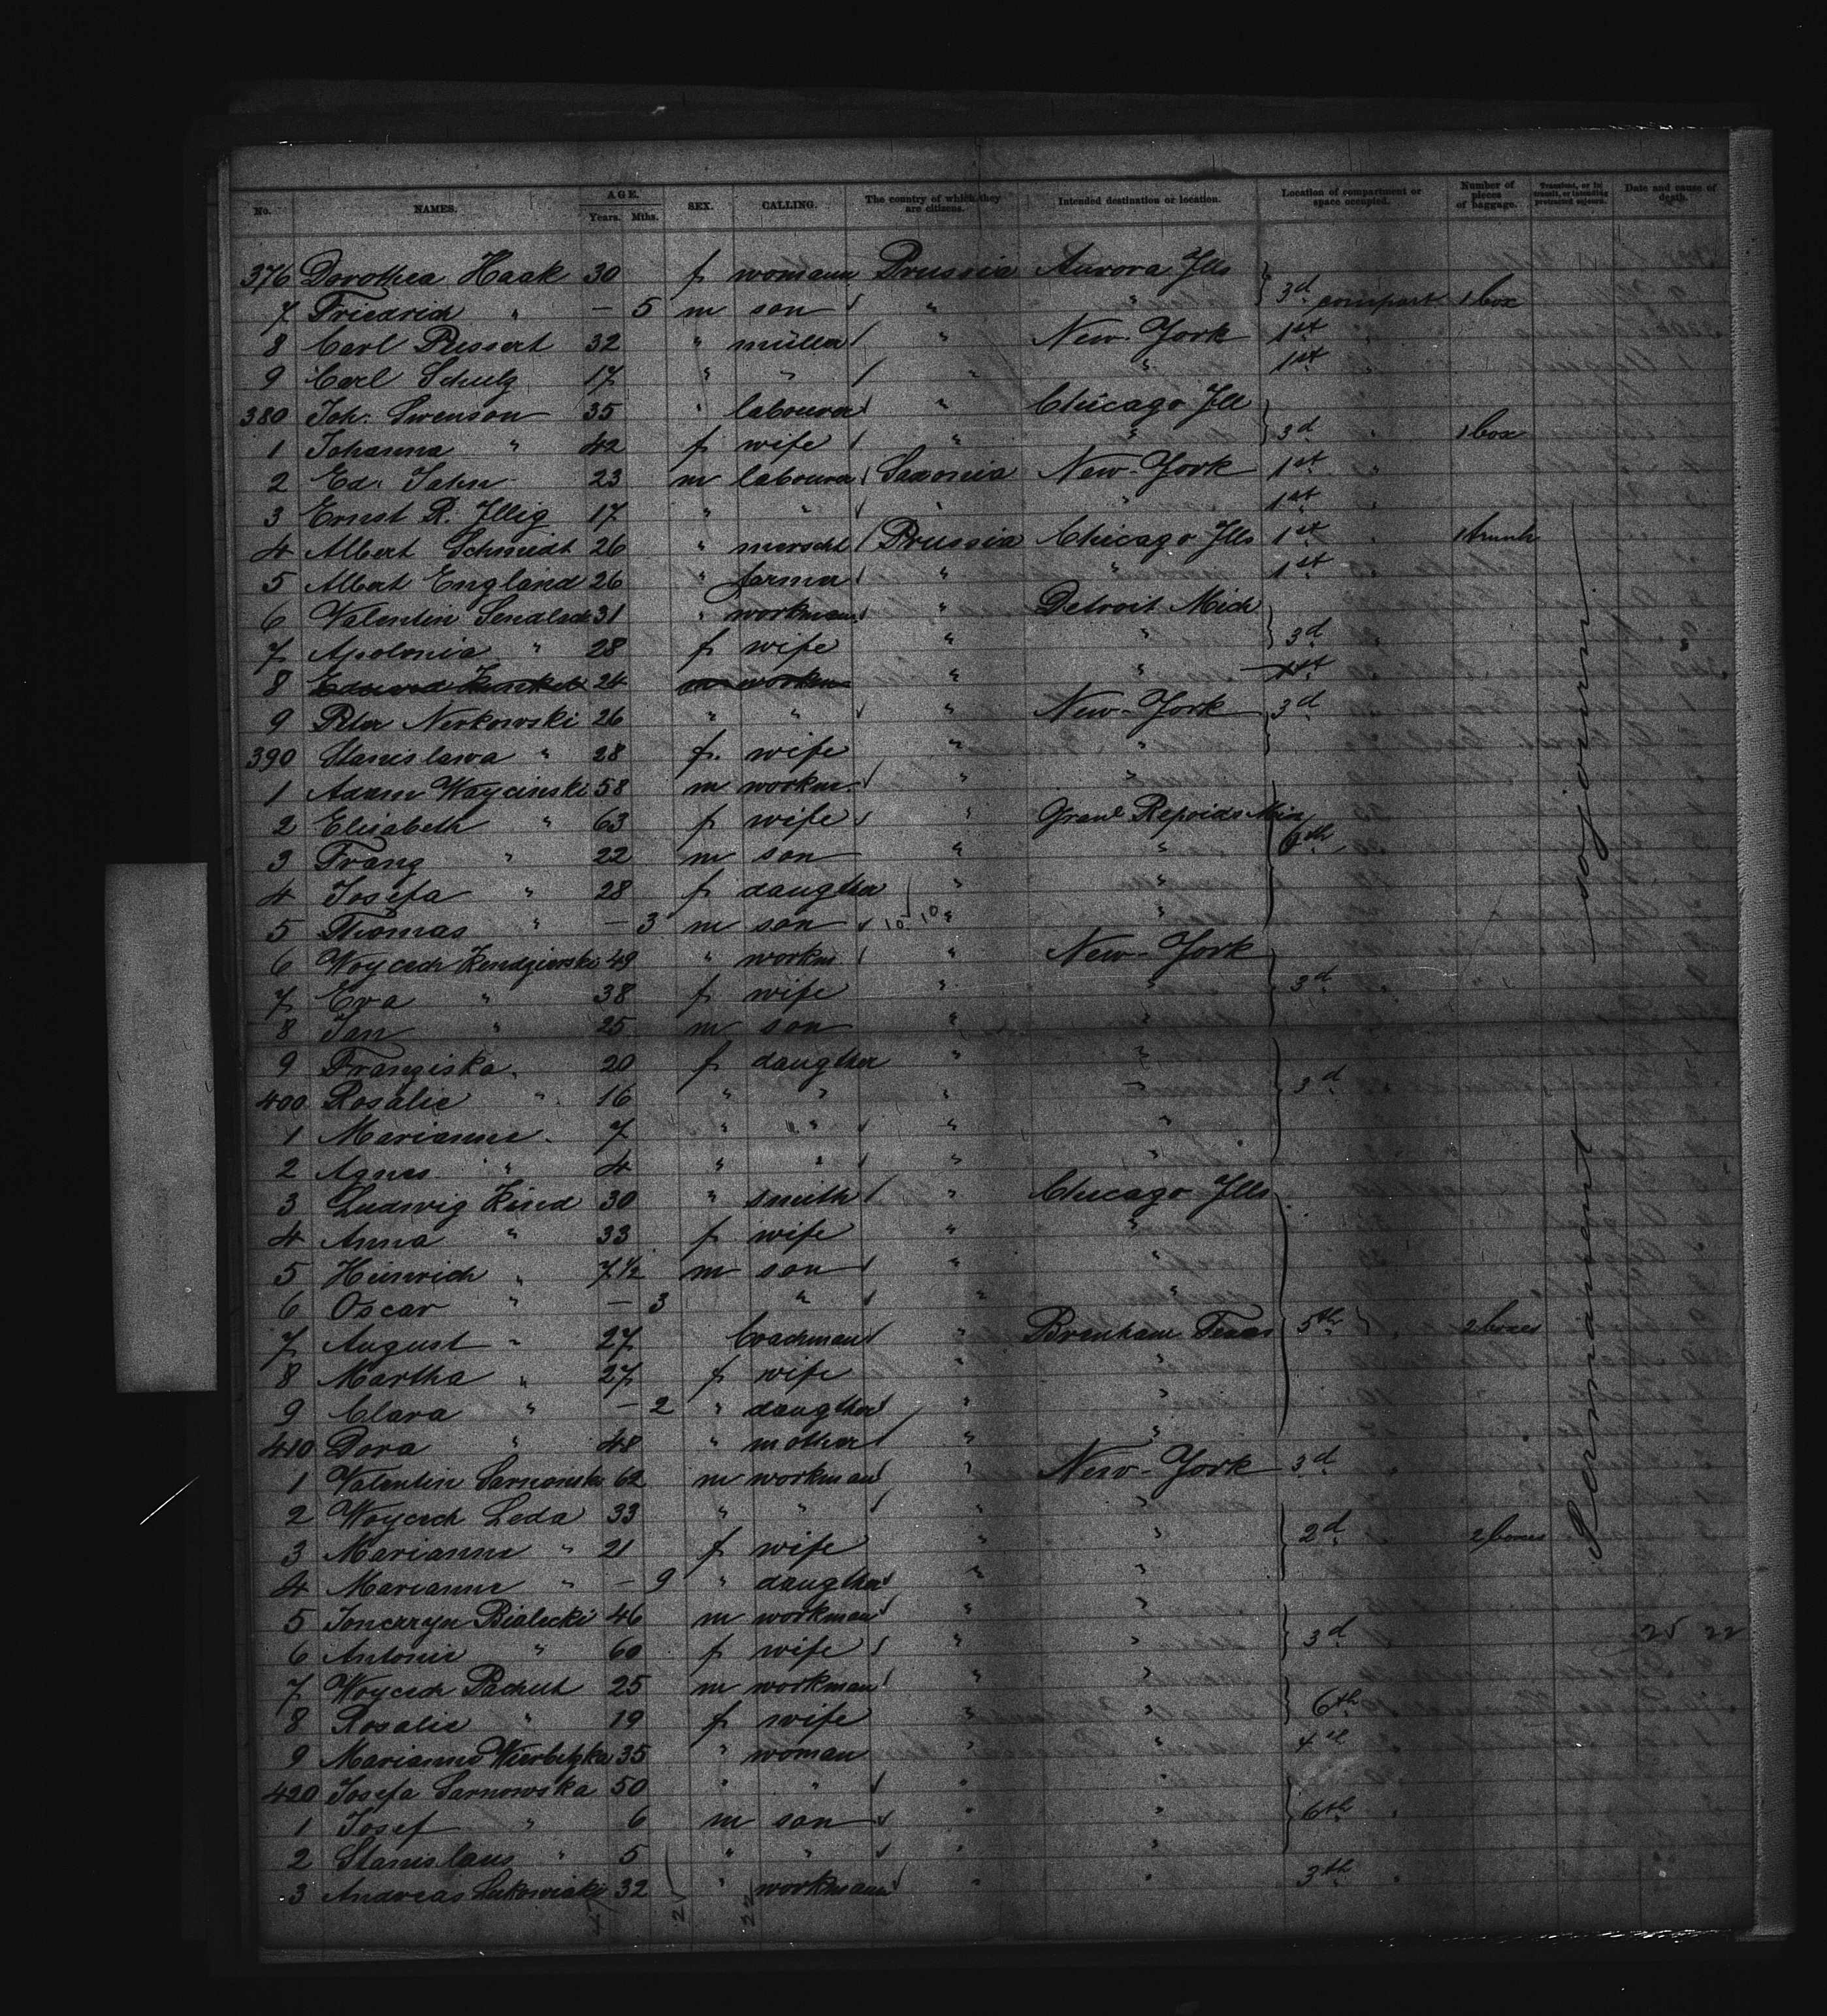 No. NAMES. AGE. Years. Mths. SEX. CALLING. The country of which they are citizens. Intended destination or location. Location of compartment or space occupied. Number of pieces of baggage. Transient, or in transit, or intending protracted sojourn. Date and cause of death.
376 Dorothea Haak 30 f womann Prussia Aurora Ills
7 Friedrich " — 5 m son " " 3d compart 1 box
8 Carl Pussert 32 " müller " New-York 1st
9 Carl Schulz 17 " " " " 1st
380 Joh. Swenson 35 " labourer " Chicago Ill
1 Johanna " 42 f wife " " 3d " 1 box
2 Ed. Jahn 23 m labourer Saxonia New-York 1st "
3 Ernst R. Illig 17 " " " " 1st "
4 Albert Schmidt 26 " merscht Prussia Chicago Ills 1st " 1 trunk
5 Albert England 26 " farmer " " 1st "
6 Valentin 31 " workman " Detroit Mich
7 Apolonia " 28 f wife " " 3d "
8 Eduard 24 m workm " " 1st
9 Peter Nerkowski 26 " " " New-York 3d
390 Stanislawa " 28 f. wife " "
1 Adam Waycinski 58 m workm. " "
2 Elisabeth " 63 f wife " Grand Repoids Mich
3 Franz " 22 m son " " 6th
4 Josefa " 28 f daugther " "
5 Thomas " — 3 m son 10 10 " "
6 Woycech Kendzierski 49 " workm " New-York
7 Eva " 38 f wife " " 3d "
8 Jan " 25 m son " "
9 Franziska " 20 f daugther " "
400 Rosalie " 16 " " " " 3d
1 Marianne " 7 " " " "
2 Agnes " 4 " " " "
3 Ludwig Kind 30 " smith " Chicago Ills
4 Anna " 33 f wife " "
5 Heinrich " 7½ m son " "
6 Oscar " — 3 " " "
7 August " 27 Coachman " Brenham Texas 5th " 2 boxes
8 Martha " 27 f wife " "
9 Clara " — 2 " daugther " "
410 Dora " 48 " mother " "
1 Valentin Sarnowski 62 m workman " New-York 3d "
2 Woycech Leda 33 " " " "
3 Marianne " 21 f wife " " 2d " 2 boxes
4 Marianne " — 9 " daugther " "
5 Bialecki 46 m workman " "
6 Antonie " 60 f wife " " 3d " 25 22
7 Woycech Pachut 25 m workman " "
8 Rosalie " 19 f wife " " 6th "
9 Marianne Wierbitzka 35 " woman " " 4th "
420 Josefa Sarnowska 50 " " " "
1 Josef " 6 m son " " 6th "
2 Stanislaus " 5 " " " "
3 Andreas 32 " workmann " " 3th "
Permanent sojourn